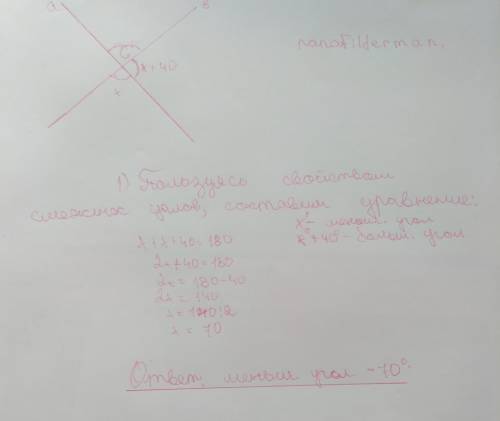 a
B
x+40
x
nanofilterman.
1) Пользуясь свойствам
смежных углов, составим уравнение:
x° - меньш. угол
x°+40 - больш. угол
x+x+40=180
2x+40=180
2x=180-40
2x=140
x=140:2
x=70
Ответ, меньш угол -70°.